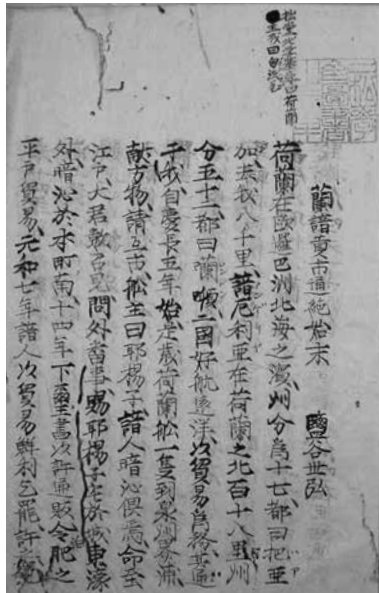 蘭諳貢市通絶始末 鹽谷世弘
荷蘭在歐羅巴洲北海之濱、州分爲十七、都曰把亞
加、去我八千里、諳尼利亞在荷蘭之北百十八里、州
分五十二、都曰蘭噸、二國好航遠洋、以貿易爲務、其通
于我、自慶長五年始、是歲荷蘭舩一隻到泉州界浦、
獻方物、請互市、舩主曰耶楊子、諳人暗沁俱焉、命至
江戸、大君數召見、問外蕃事、賜耶楊子宅於城東濠
外、暗沁於本町南、十四年下璽書、以許通販、令肥之
平戸貿易、元和七年諳人以貿易鮮利乞罷許之